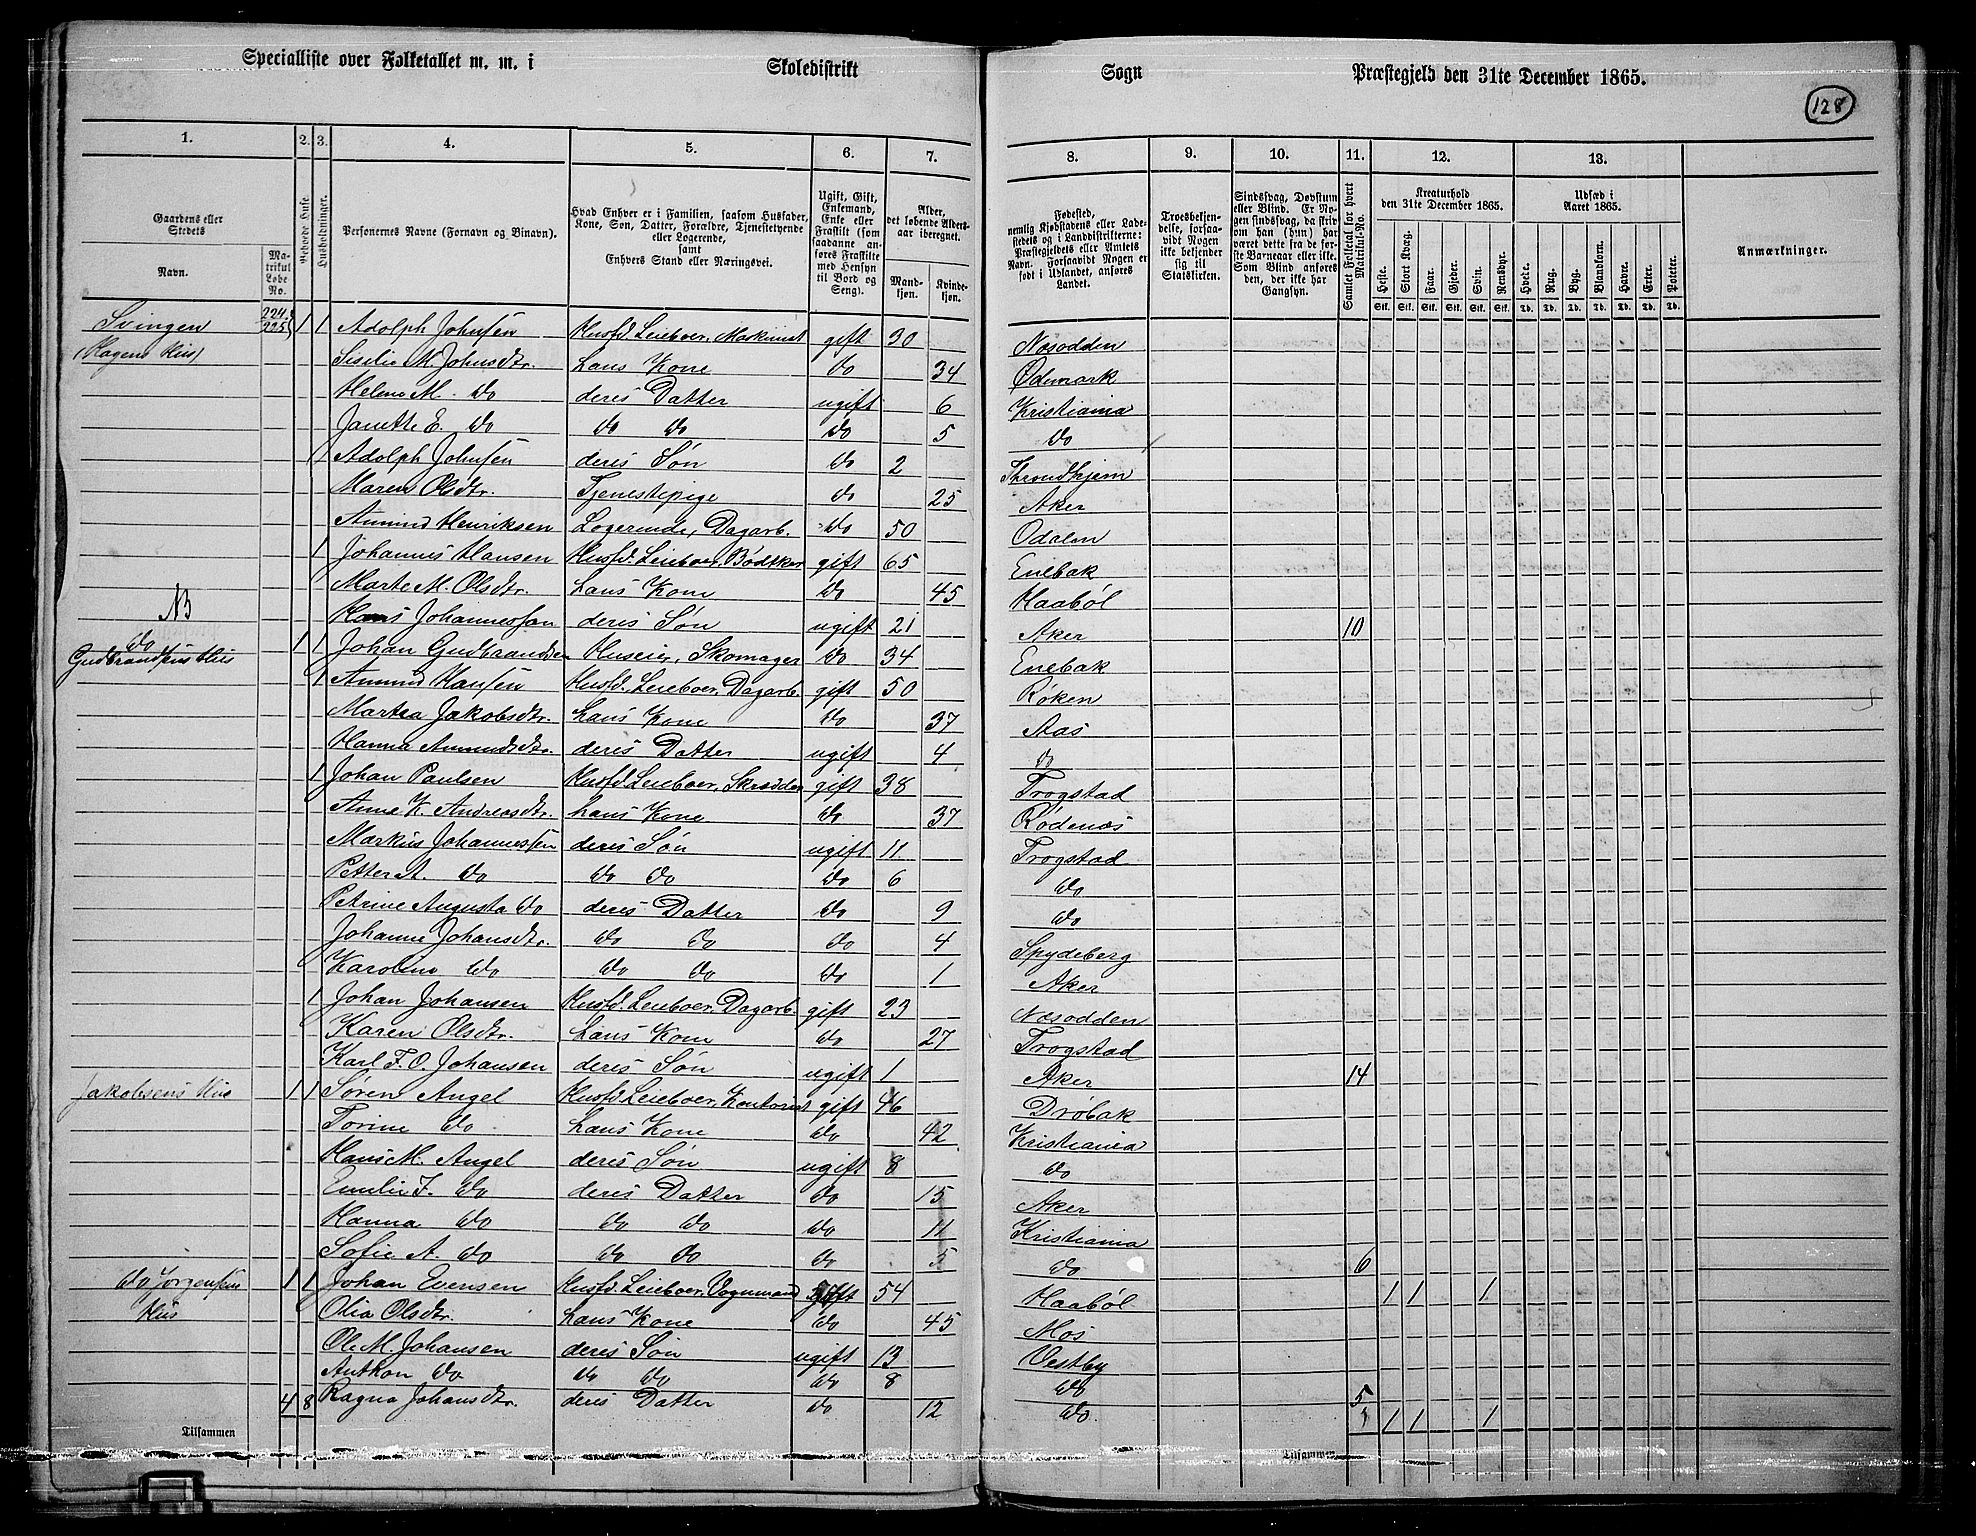 Specialliste over Folketallet m. m. i Skoledistrikt Sogn Præstegjeld den 31te December 1865.
128
1. 2. 3. 4. 5. 6. 7. 8. 9. 10. 11. 12. 13.
Gaardens eller Stedets
Navn.
Matrikul Løbe No.
Beboede Huse.
Husholdninger.
Personernes Navne (Fornavn og Binavn).
Hvad Enhver er i Familien, saasom Husfader, Kone, Søn, Datter, Forældre, Tjenestetyende eller Logerende, samt Enhvers Stand eller Næringsvei.
Ugift, Gift, Enkemand, Enke eller Fraskilt (som saadanne anføres Fraskilte med Hensyn til Bord og Seng).
Alder, det løbende Aldersaar iberegnet.
Mandkjøn. Kvindekjøn.
Fødested, nemlig Kjøbstadens eller Ladestedets og i Landdistrikterne: Præstegjeldets eller Amtets Navn. Forsaavidt Nogen er født i Udlandet, anføres Landet.
Troesbekjendelse, forsaavidt Nogen ikke bekjender sig til Statskirken.
Sindssvag, Døvstum eller Blind. Er Nogen sindssvag, da skrives om han (hun) har været dette fra de første Barneaar eller ikke. Som Blind anføres den, der ikke har Gangsyn.
Samlet Folketal for hvert Matrikul-No.
Kreaturhold den 31te December 1865.
Udsæd i Aaret 1865.
Anmærkninger.
Heste. Stort Kvæg. Faar. Gjeder. Svin. Rensdyr. Hvede. Rug. Byg. Blandkorn. Havre. Erter. Poteter.
Stk. Stk. Stk. Stk. Stk. Stk. Td. Td. Td. Td. Td. Td. Td.
Svingen 224 225 1 1 Adolph Johnsen Husfd. Leieboer, Maskinist gift 30 Næsodden
(Hagens Hus) Sisilie M. Johnsdtr. Hans Kone do 34 Ødemark
Helene M. do deres Datter ugift 6 Kristiania
Janette E. do do do do 5 do
Adolph Johnsen deres Søn do 2 Throndhjem
Maren Olsdtr. Tjenestepige do 25 Aker
Amund Henriksen Logerende, Dagarb. do 50 Odalen
1 Johannes Hansen Husfd. Leieboer, Bødtker gift 65 Enebak
Marte M. Olsdtr. Hans Kone do 45 Haabøl
NB Hans Johannessen deres Søn ugift 21 Aker 10
do
Gudbrandsens Hus 1 1 Johan Gudbrandsen Huseier, Skomager do 34 Enebak
1 Amund Hansen Husfd. Leieboer, Dagarb. gift 50 Røken
Martea Jakobsdtr. Hans Kone do 37 Aas
Hanna Amundsdtr. deres Datter ugift 4 do
1 Johan Paulsen Husfd. Leieboer, Skrædder gift 38 Trøgstad
Anne K. Andreasdtr. hans Kone do 37 Rødenæs
Markus Johannessen deres Søn ugift 11 Trøgstad
Petter A. do do do do 6 do
Petrine Augusta do deres Datter do 9 do
Johanne Johansdtr. do do do 4 Spydeberg
Karoline do do do do 1 Aker
1 Johan Johansen Husfd. Leieboer, Dagarb. gift 23 Næsodden
Karen Olsdtr. Hans Kone do 27 Trøgstad
Karl F. O. Johansen deres Søn ugift 1 Aker 14
Jakobsens Hus 1 1 Søren Angel Husfd. Leieboer, Kontorist gift 46 Drøbak
Torine do Hans Kone do 42 Kristiania
Hans M. Angel deres Søn ugift 8 do
Emilie F. do deres Datter do 15 Aker
Hanna do do do do 11 Kristiania
Sofie A. do do do do 5 do 6
do Jørgensens 1 1 Johan Evensen Husfd. Leieboer, Vognmand gift 54 Haabøl 1 1 1
Hus Olia Olsdtr. Hans Kone do 45 Mos
Ole M. Johansen deres Søn ugift 13 Vestby
Anthon do do do do 8 do
4 8 Ragna Johansdtr. deres Datter do 12 do 5 1 1 1
Tilsammen Tilsammen